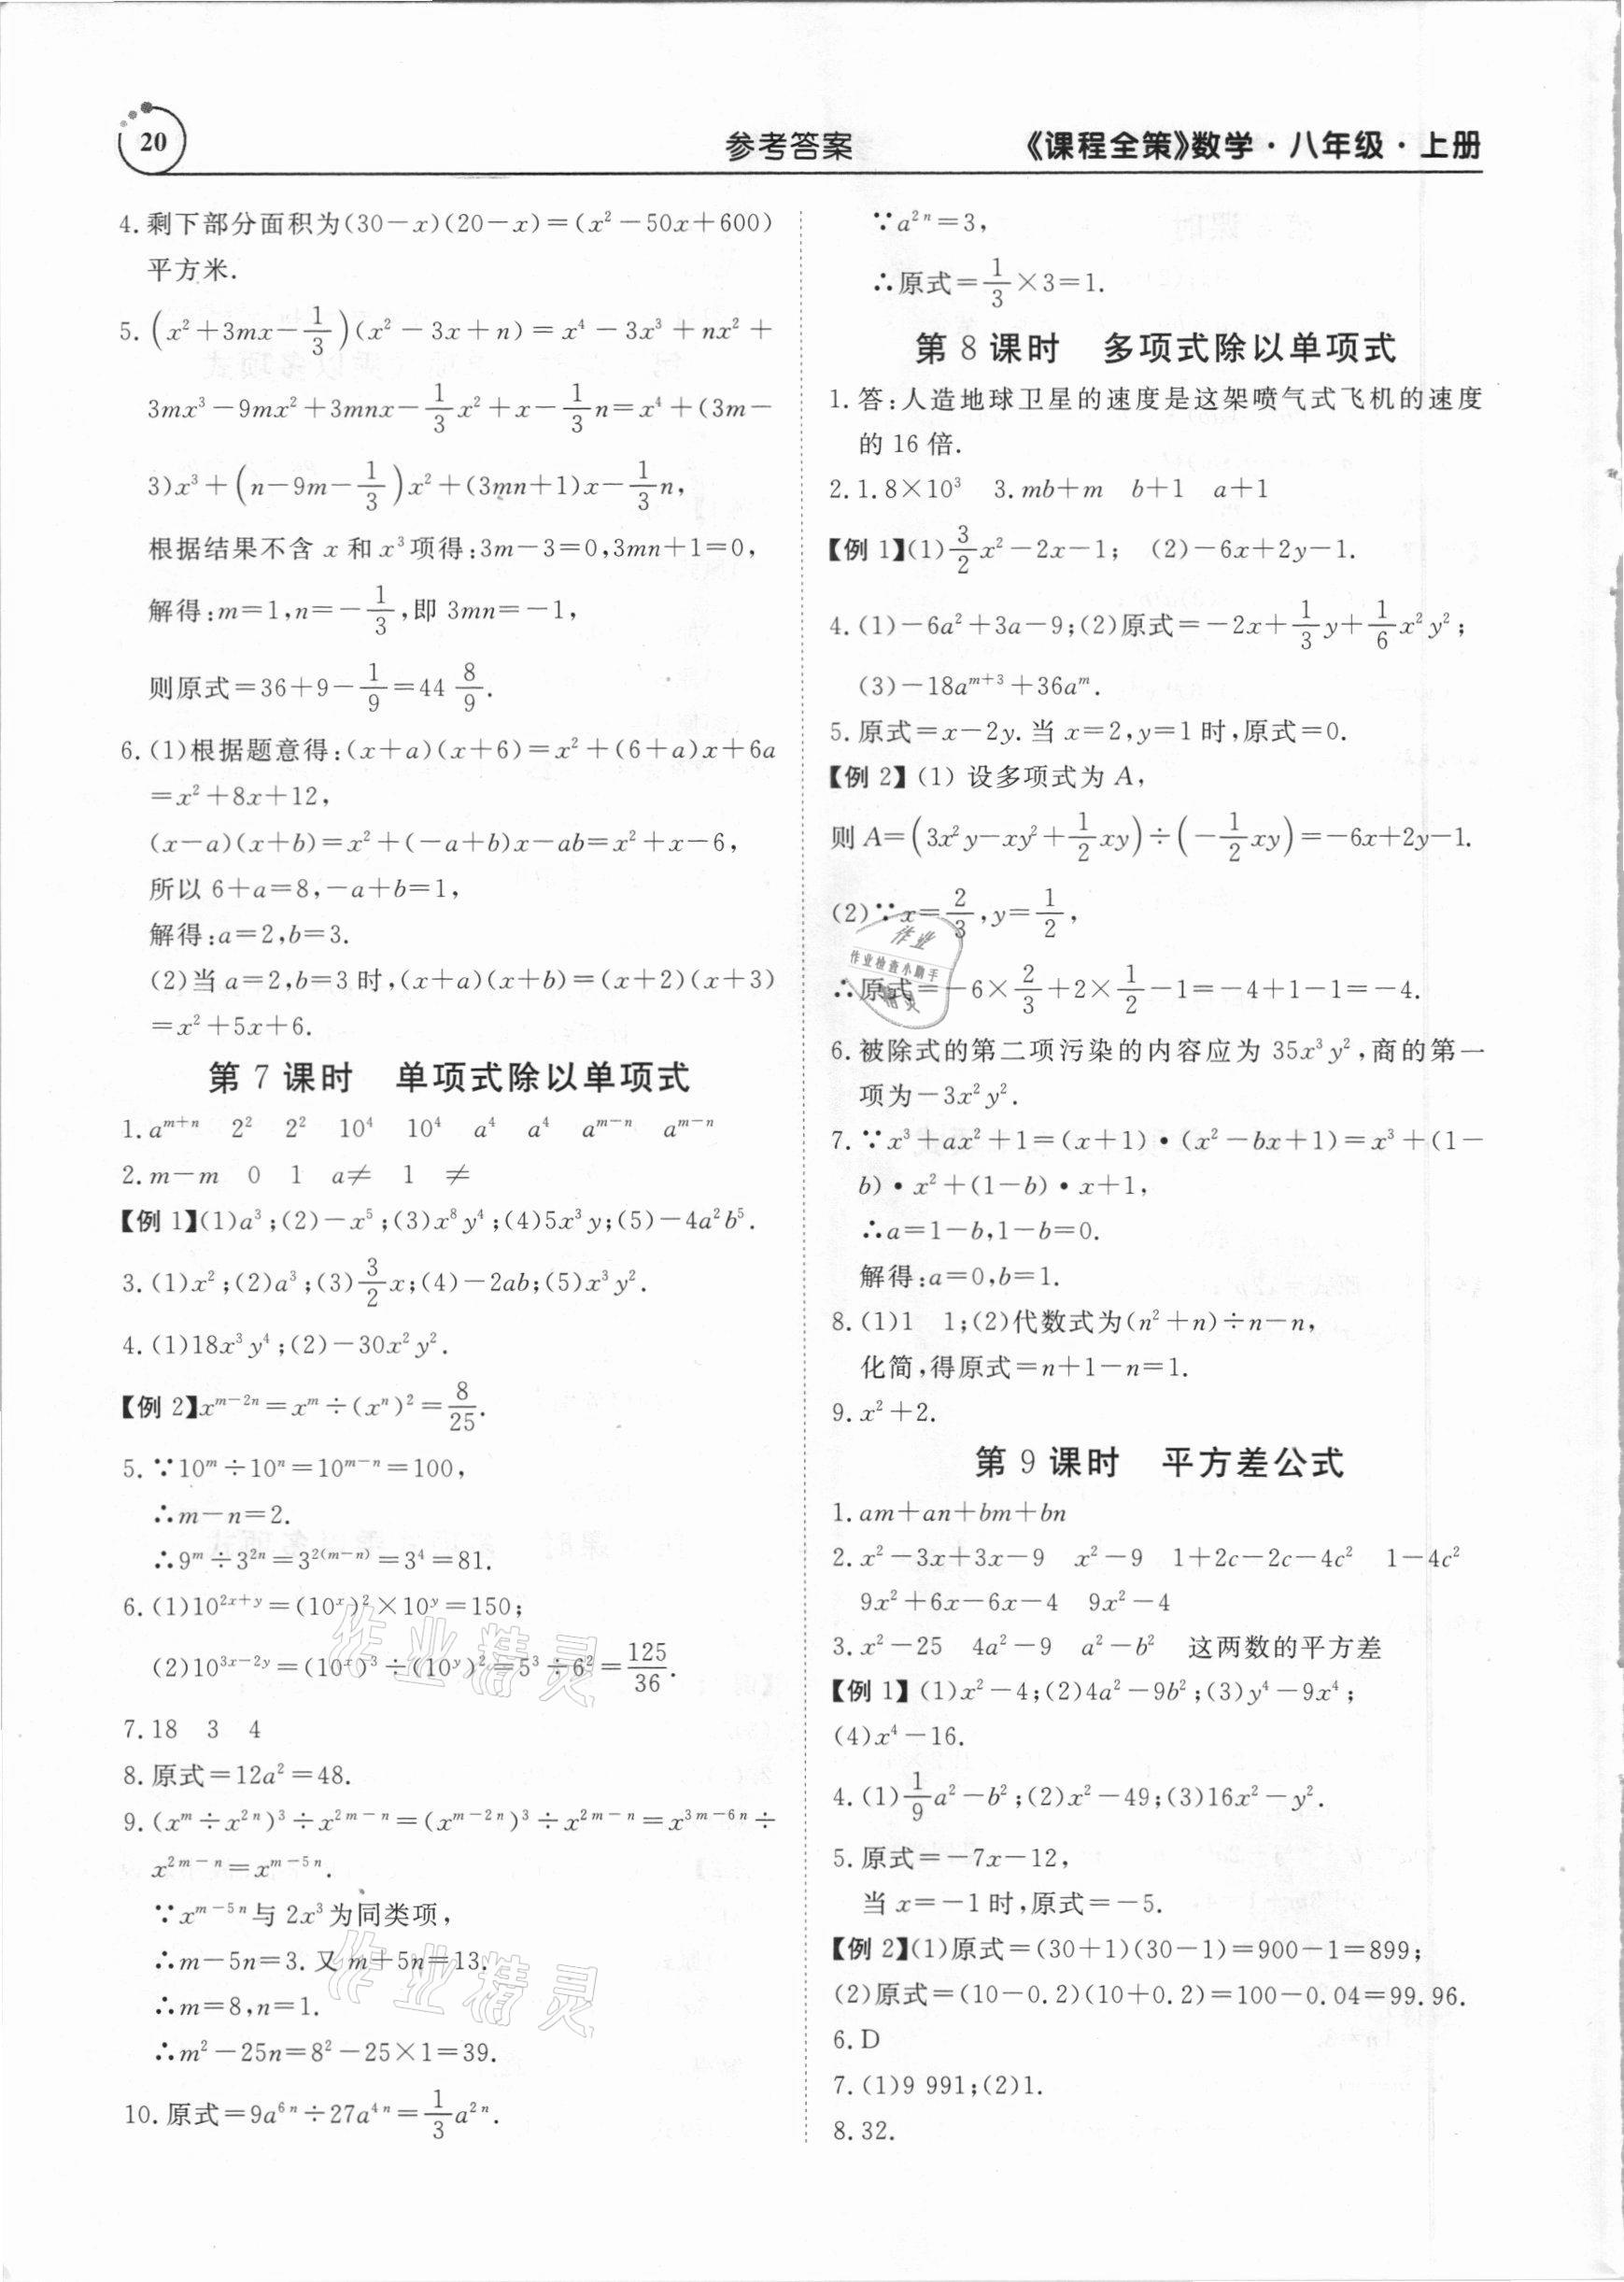 20
参考答案
《课程全策》数学·八年级·上册
4.剩下部分面积为(30－x)(20－x)＝(x²－50x＋600)
平方米.
5.(x²＋3mx－1/3)(x²－3x＋n)＝x⁴－3x³＋nx²＋
3mx³－9mx²＋3mnx－1/3x²＋x－1/3n＝x⁴＋(3m－
3)x³＋(n－9m－1/3)x²＋(3mn＋1)x－1/3n,
根据结果不含 x 和 x³项得:3m－3＝0,3mn＋1＝0,
解得:m＝1,n＝－1/3,即 3mn＝－1,
则原式＝36＋9－1/9＝44 8/9.
6.(1)根据题意得:(x＋a)(x＋6)＝x²＋(6＋a)x＋6a
＝x²＋8x＋12,
(x－a)(x＋b)＝x²＋(－a＋b)x－ab＝x²＋x－6,
所以 6＋a＝8,－a＋b＝1,
解得:a＝2,b＝3.
(2)当 a＝2,b＝3 时,(x＋a)(x＋b)＝(x＋2)(x＋3)
＝x²＋5x＋6.
第 7 课时　单项式除以单项式
1.aᵐ⁺ⁿ　2²　2²　10⁴　10⁴　a⁴　a⁴　aᵐ⁻ⁿ　aᵐ⁻ⁿ
2.m－m　0　1　a≠　1　≠
【例 1】(1)a³;(2)－x⁵;(3)x⁸y⁴;(4)5x³y;(5)－4a²b⁵.
3.(1)x²;(2)a³;(3)3/2x;(4)－2ab;(5)x³y².
4.(1)18x³y⁴;(2)－30x²y².
【例 2】xᵐ⁻²ⁿ＝xᵐ÷(xⁿ)²＝8/25.
5.∵10ᵐ÷10ⁿ＝10ᵐ⁻ⁿ＝100,
∴m－n＝2.
∴9ᵐ÷3²ⁿ＝3²⁽ᵐ⁻ⁿ⁾＝3⁴＝81.
6.(1)10²ˣ⁺ʸ＝(10ˣ)²×10ʸ＝150;
(2)10³ˣ⁻²ʸ＝(10ˣ)³÷(10ʸ)²＝5³÷6²＝125/36.
7.18　3　4
8.原式＝12a²＝48.
9.(xᵐ÷x²ⁿ)³÷x²ᵐ⁻ⁿ＝(xᵐ⁻²ⁿ)³÷x²ᵐ⁻ⁿ＝x³ᵐ⁻⁶ⁿ÷
x²ᵐ⁻ⁿ＝xᵐ⁻⁵ⁿ.
∵xᵐ⁻⁵ⁿ与 2x³为同类项,
∴m－5n＝3.又 m＋5n＝13.
∴m＝8,n＝1.
∴m²－25n＝8²－25×1＝39.
10.原式＝9a⁶ⁿ÷27a⁴ⁿ＝1/3a²ⁿ.
∵a²ⁿ＝3,
∴原式＝1/3×3＝1.
第 8 课时　多项式除以单项式
1.答:人造地球卫星的速度是这架喷气式飞机的速度
的 16 倍.
2.1.8×10³　3.mb＋m　b＋1　a＋1
【例 1】(1)3/2x²－2x－1;　(2)－6x＋2y－1.
4.(1)－6a²＋3a－9;(2)原式＝－2x＋1/3y＋1/6x²y²;
(3)－18aᵐ⁺³＋36aᵐ.
5.原式＝x－2y.当 x＝2,y＝1 时,原式＝0.
【例 2】(1) 设多项式为 A,
则 A＝(3x²y－xy²＋1/2xy)÷(－1/2xy)＝－6x＋2y－1.
(2)∵x＝2/3,y＝1/2,
∴原式＝－6×2/3＋2×1/2－1＝－4＋1－1＝－4.
6.被除式的第二项污染的内容应为 35x³y²,商的第一
项为－3x²y².
7.∵x³＋ax²＋1＝(x＋1)•(x²－bx＋1)＝x³＋(1－
b)•x²＋(1－b)•x＋1,
∴a＝1－b,1－b＝0.
解得:a＝0,b＝1.
8.(1)1　1;(2)代数式为(n²＋n)÷n－n,
化简,得原式＝n＋1－n＝1.
9.x²＋2.
第 9 课时　平方差公式
1.am＋an＋bm＋bn
2.x²－3x＋3x－9　x²－9　1＋2c－2c－4c²　1－4c²
9x²＋6x－6x－4　9x²－4
3.x²－25　4a²－9　a²－b²　这两数的平方差
【例 1】(1)x²－4;(2)4a²－9b²;(3)y⁴－9x⁴;
(4)x⁴－16.
4.(1)1/9a²－b²;(2)x²－49;(3)16x²－y².
5.原式＝－7x－12,
当 x＝－1 时,原式＝－5.
【例 2】(1)原式＝(30＋1)(30－1)＝900－1＝899;
(2)原式＝(10－0.2)(10＋0.2)＝100－0.04＝99.96.
6.D
7.(1)9 991;(2)1.
8.32.
作业
作业检查小助手
精灵
作业精灵
作业精灵